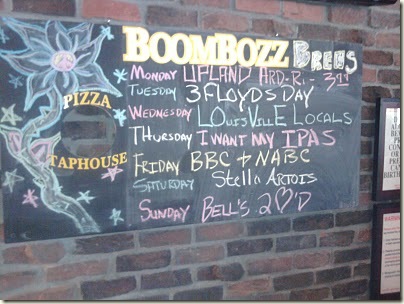 BOOMBOZZ BREWS
PIZZA
TAPHOUSE
MONDAY UPLAND ARD-RI - 3
TUESDAY 3 FLOYDS DAY
WEDNESDAY LOUISVILLE LOCALS
THURSDAY I WANT MY IPAS
FRIDAY BBC + NABC
SATURDAY Stella ARTOIS
SUNDAY BELL'S 2♡'D